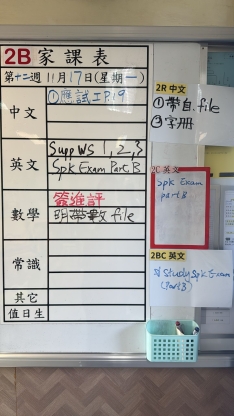 2B 家課表
第十二週 11月17日(星期一)
中文
①應試工P.19
英文
Supp WS 1, 2, 3
Spk Exam Part B
數學
簽進評
明帶數 file
常識
其它
值日生
2R 中文
①帶自.file
②字冊
2C 英文
Spk Exam
part B
2BC 英文
Study Spk Exam
(Part B)